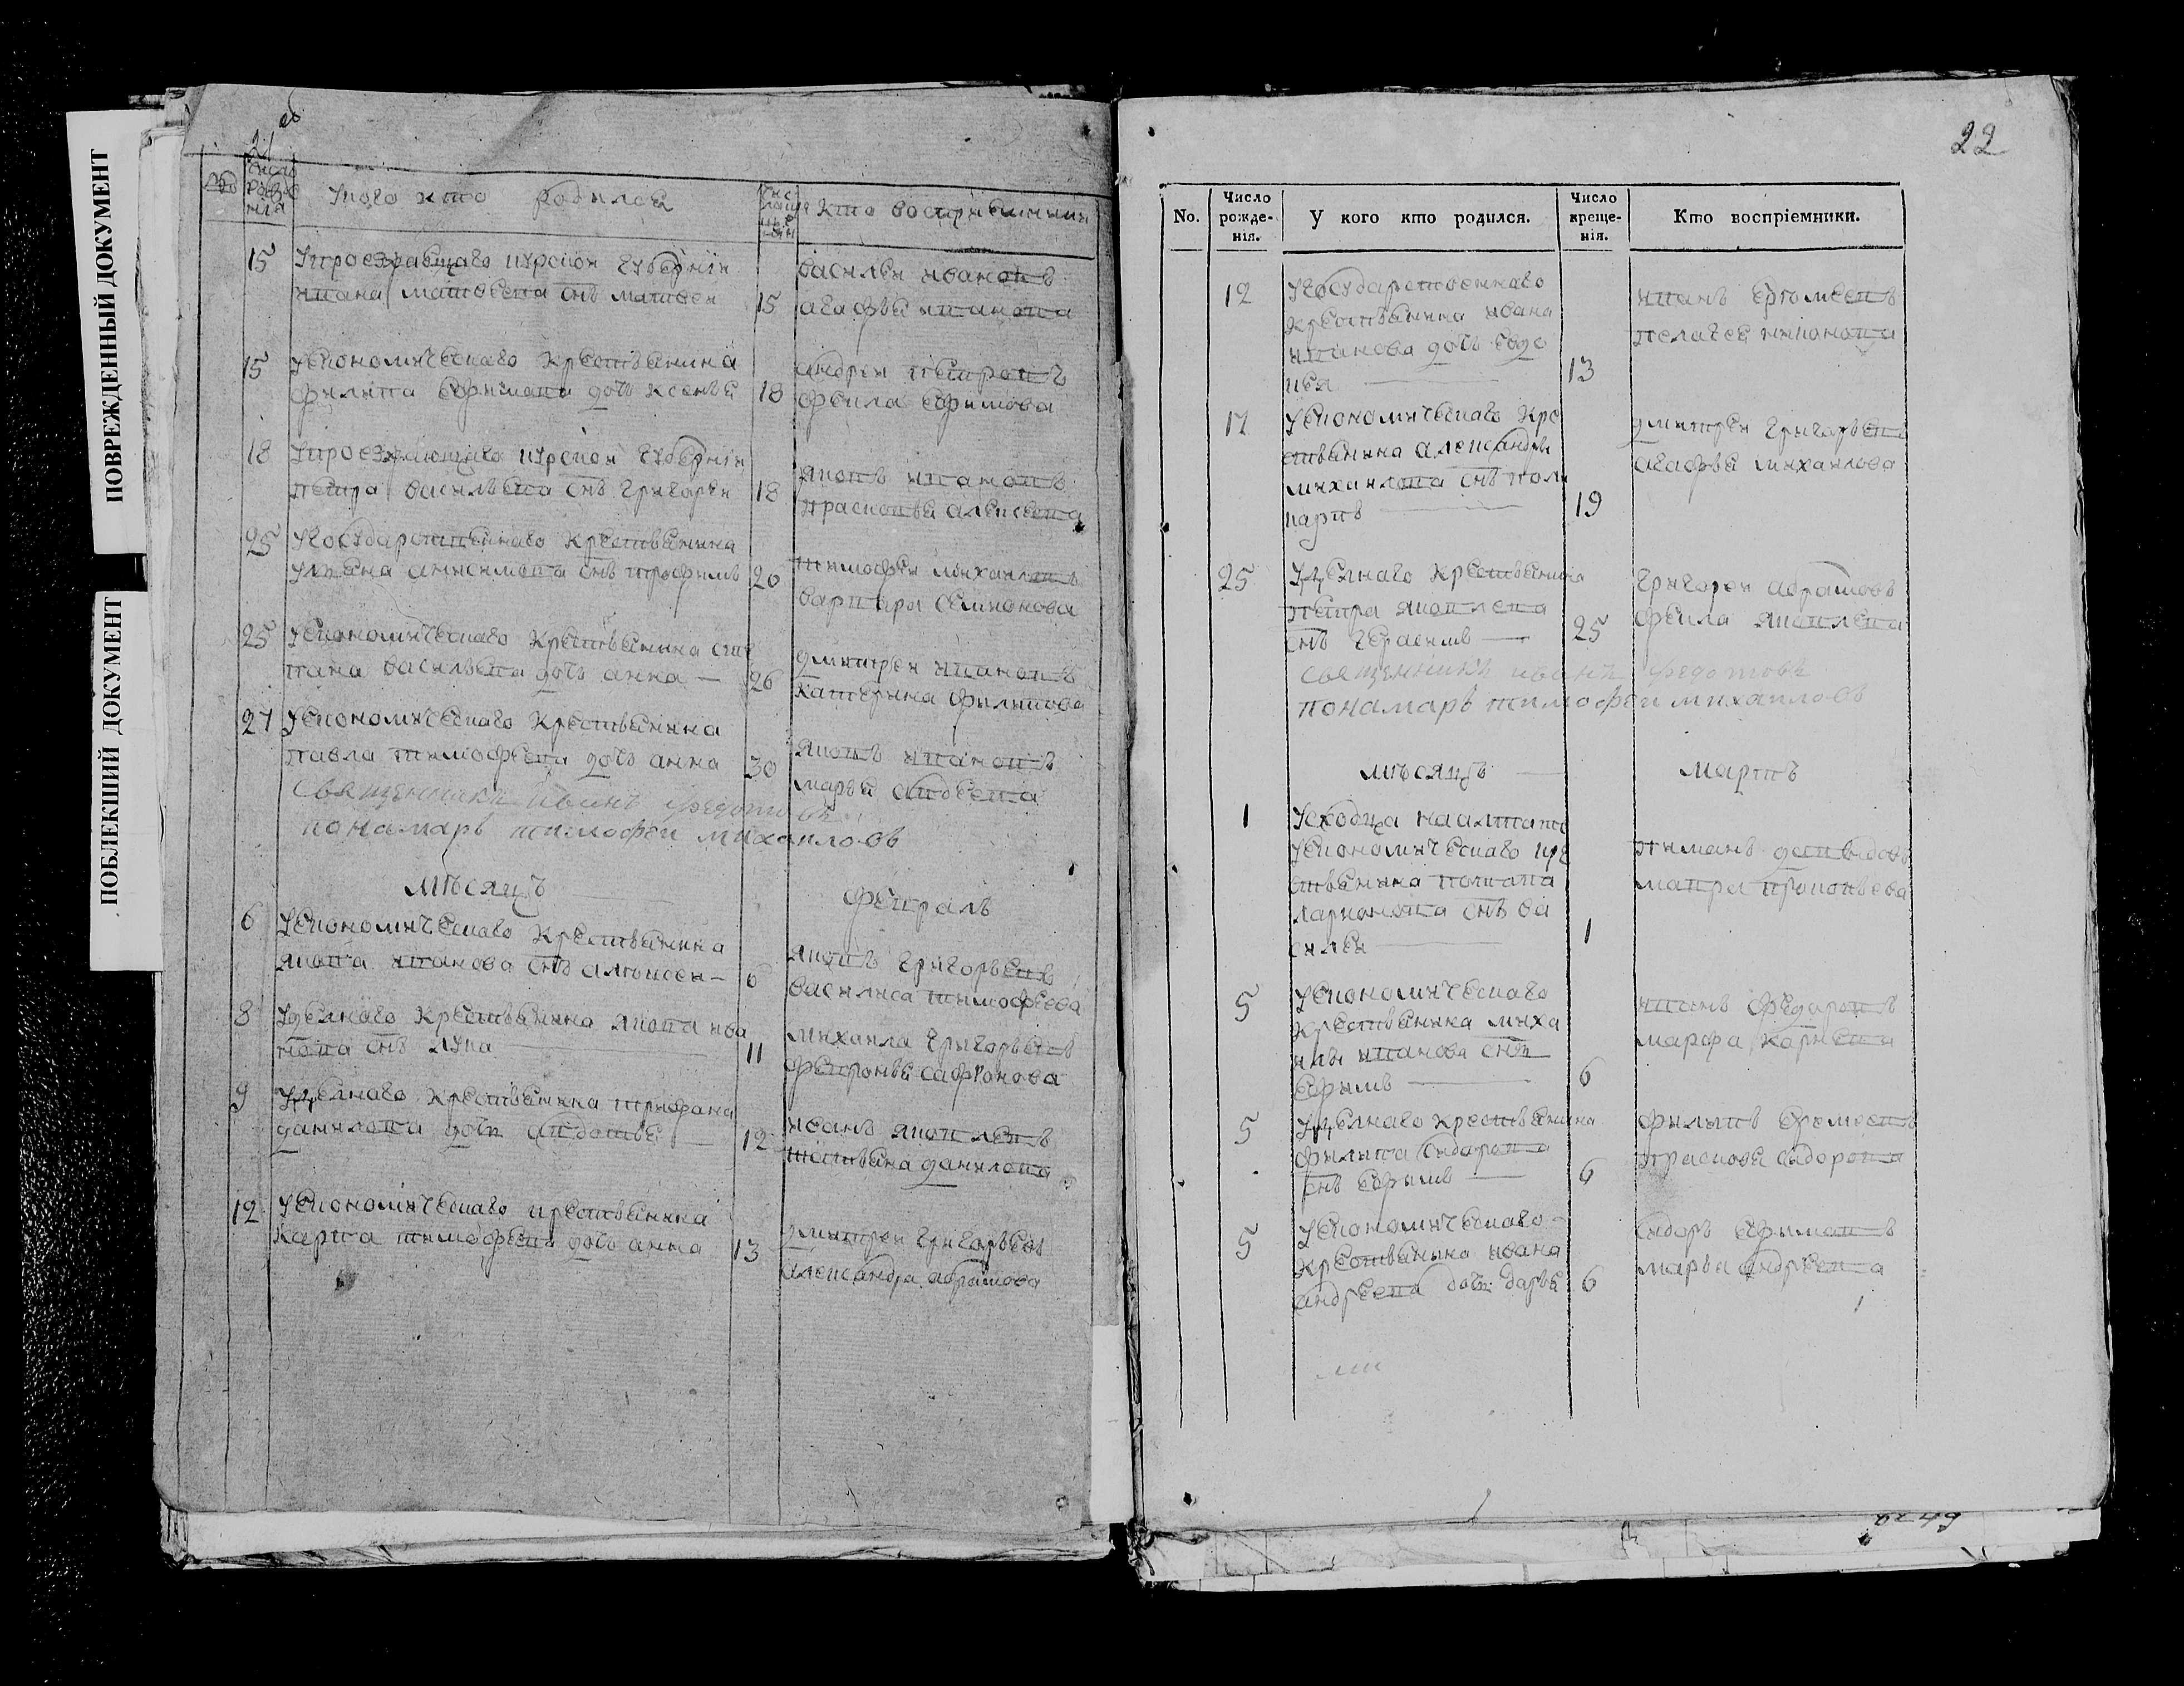 ПОВРЕЖДЕННЫЙ ДОКУМЕНТ
ПОБЛЕКШИЙ ДОКУМЕНТ
21 об
№
число рожденія
У кого кто родился
Кто восприемники
15
У проезжающаго курской губерніи
ивана матвеева снъ матвеи
15
василеи ивановъ
агафья иванова
15
У економическаго крестьянина
филипа ефимова дочь ксенья
18
андреи петровъ
фекла ефимова
18
У проезжающаго курской губерніи
петра васильева снъ григореи
18
яковъ ивановъ
прасковья алексеева
25
У государственнаго крестьянина
ульяна анисимова снъ трофимъ
26
тимофеи михаиловъ
варвара семионова
25
У економическаго крестьянина сте
пана васильева дочь анна
26
дмитреи ивановъ
катерина филипова
27
У економическаго крестьянина
павла тимофеева дочь анна
30
яковъ ивановъ
марья авдеева
священникъ иванъ федотовъ
понамарь тимофеи михаиловъ
мѣсяцъ
февраль
6
У економическаго крестьянина
якова иванова снъ алексеи
6
яковъ григорьевъ
василиса тимофеева
8
Уделнаго крестьянина якова ива
нова снъ лука
11
михаила григорьевъ
февронья сафронова
9
Уделнаго крестьянина трифана
данилова дочь авдотья
12
иванъ яковлевъ
татьяна данилова
12
У економическаго крестьянина
карпа тимофеева дочь анна
13
дмитреи григорьевъ
александра абрамова
22
No.
Число рожде-нія.
У кого кто родился.
Число креще-нія.
Кто воспріемники.
12
У государственнаго
крестьянина ивана
иванова дочь евдо
кея
13
иванъ еремеевъ
пелагея
17
У економическаго кре
стьянина александры
михаилова снъ поли
карпъ
19
дмитреи григорьевъ
агафья михаилова
25
Уделнаго крестьянина
петра яковлева
снъ герасимъ
25
григореи абрамовъ
фекла яковлева
священникъ иванъ федотовъ
понамарь тимофеи михаиловъ
мѣсяцъ
мартъ
1
У економическаго кре
стьянина
ларионова снъ ва
силеи
1
мавра прокопьева
5
У економическаго
крестьянина миха
илы иванова снъ
ефимъ
6
иванъ федоровъ
марфа карнеева
5
Уделнаго крестьянина
филипа сидорова
снъ ефимъ
6
филипъ еремеевъ
прасковья сидорова
5
У економическаго
крестьянина ивана
андреева дочь дарья
6
сидоръ ефимовъ
марья андреева